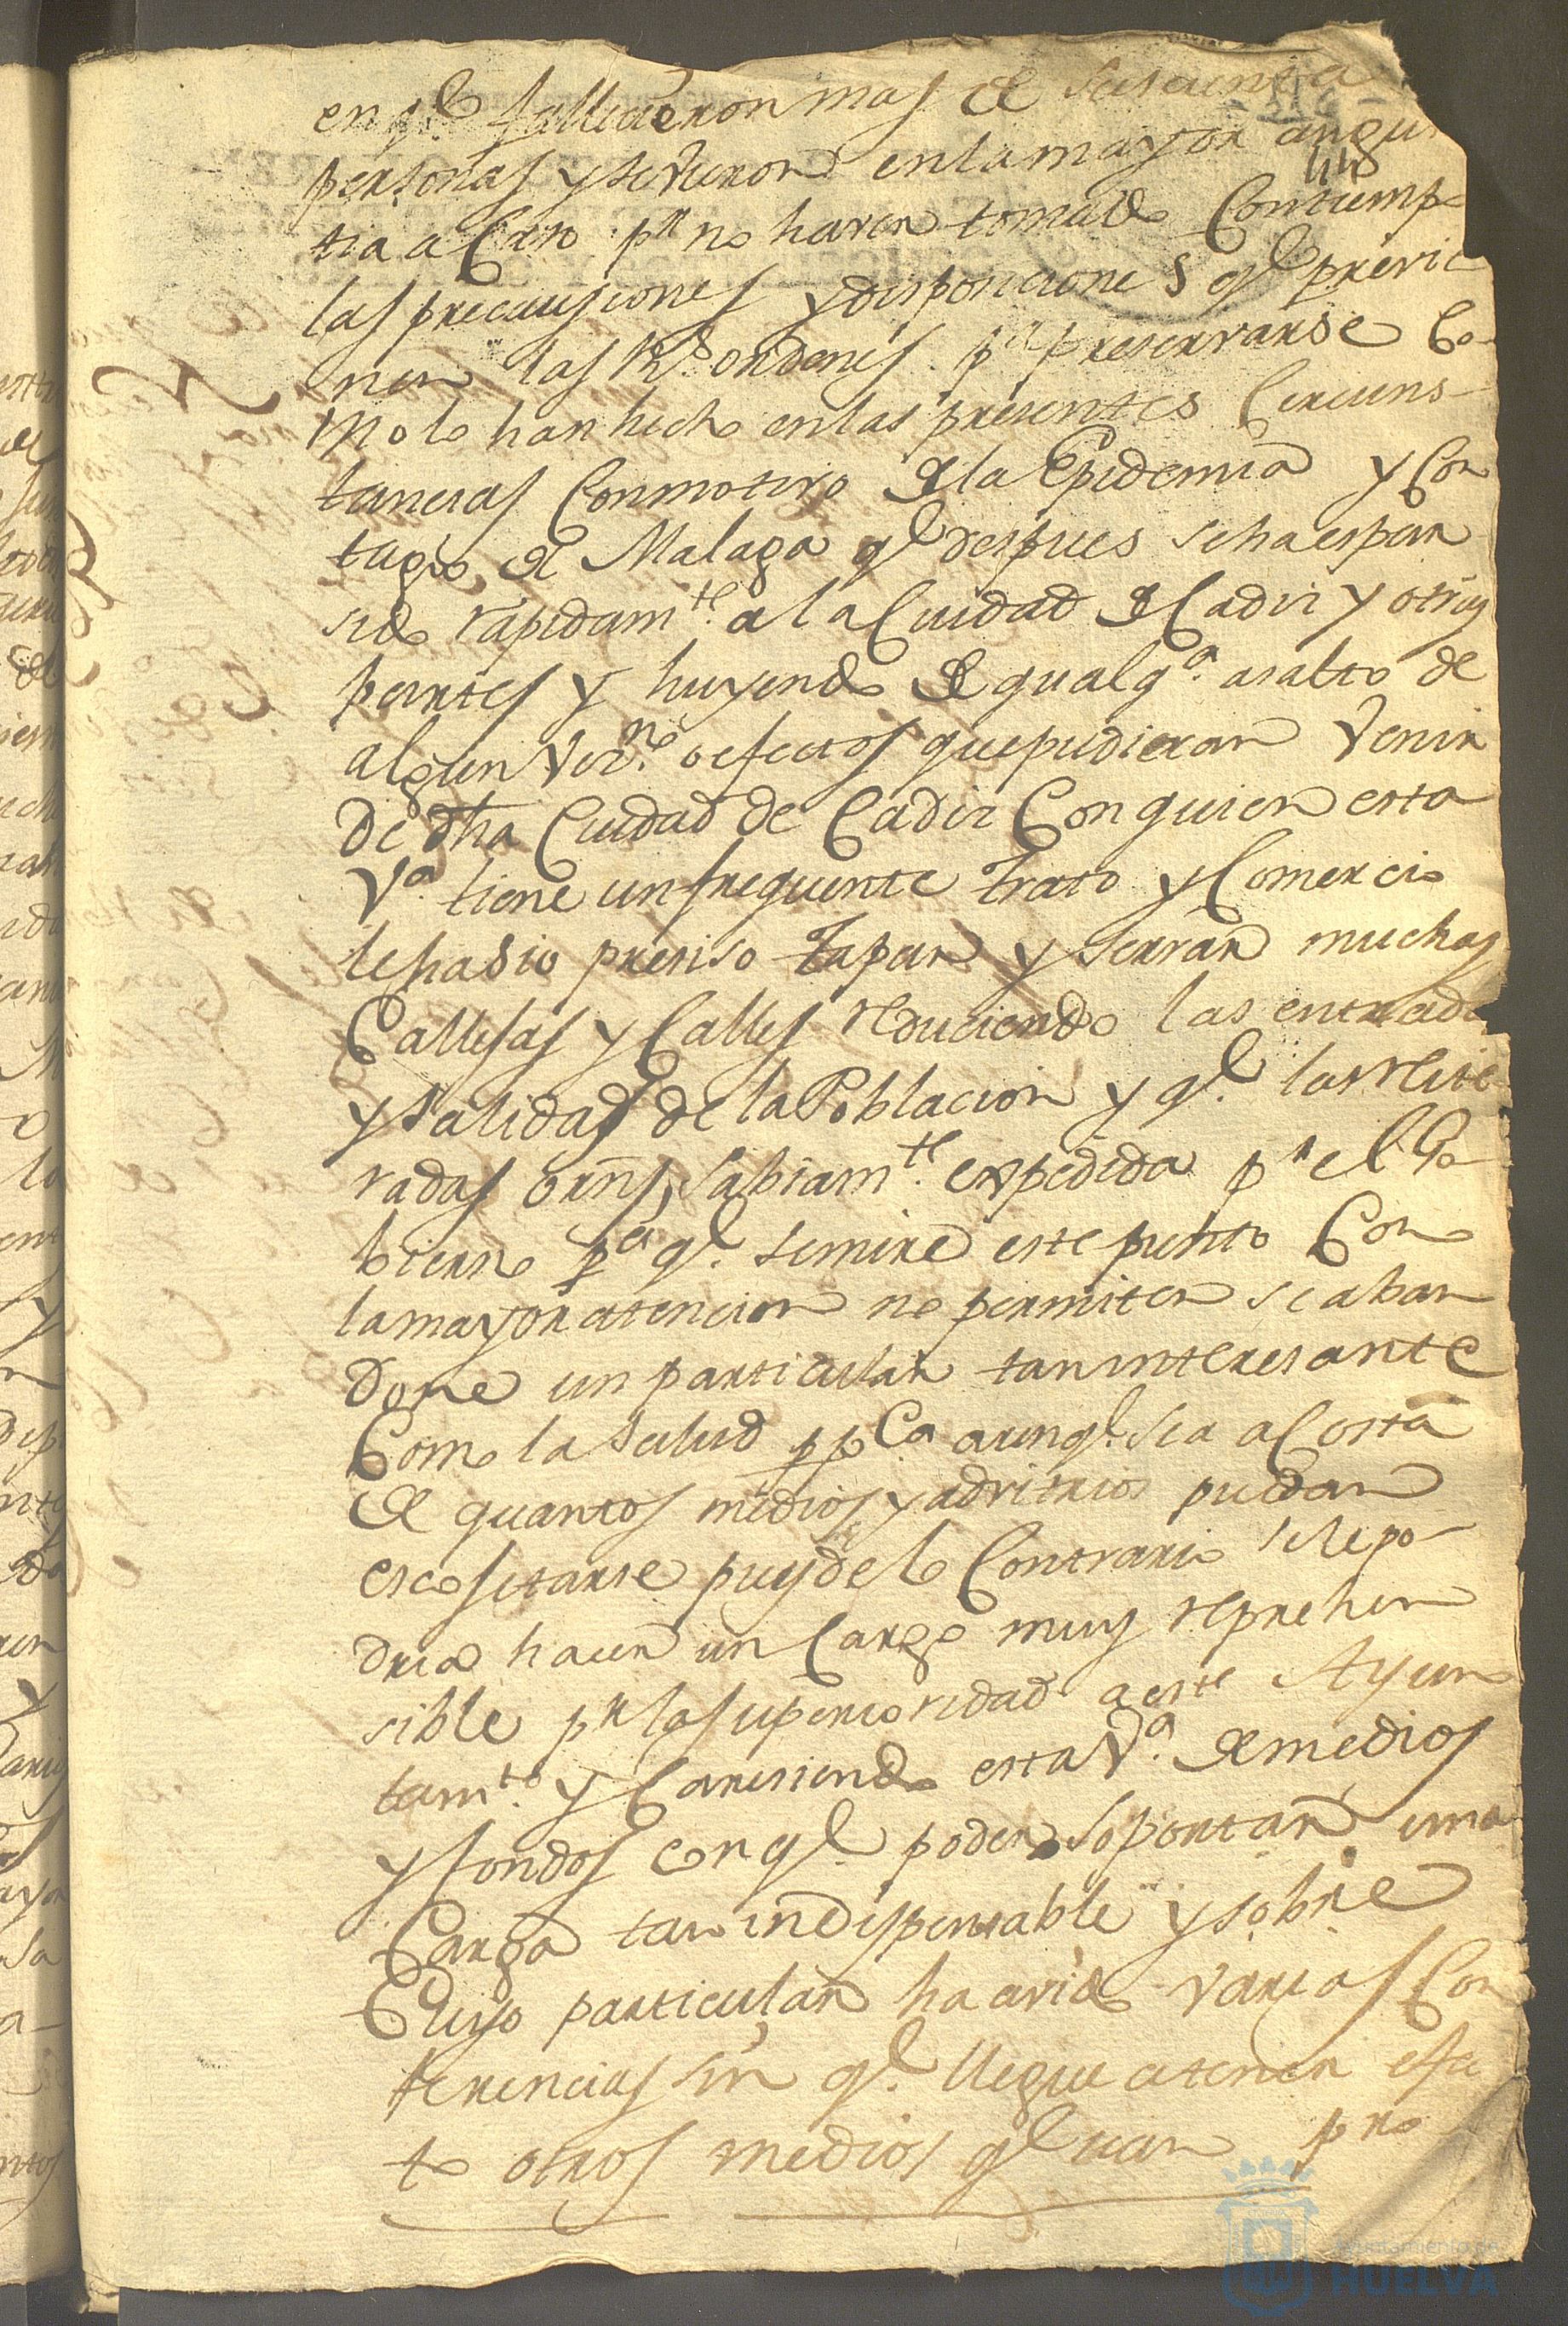 en q.^e fallecieron mas de seiscientas
personas y se vieron en la mayor angus
44
tia a Caso p.^r no haver tomado Con tiemp-
las precausiones y disposiciones q.^e previe
nen las R.^s ordenes p.^a preservarse Co-
mo lo han hecho en las presentes Circuns-
tancias Con motivo de la Epidemia y Con
tagio de Malaga q.^e despues se ha espar
sido rapidam.^te a la Ciudad de Cadiz y otras
partes y huyendo de qualq.^a asalto de
algun Vez.^no o efectos que pudieran Venir
de dha Ciudad de Cadiz Con quien esta
V.^a tiene un frequente trato y Comercio
le ha sido presiso tapar y serrar muchas
Callesas y Calles reduciendo las entrada
y salidas de la Poblacion y q.^e las reite
radas orns, sabiam.^te expedida p.^r el Go-
bierno p.^a q.^e se mire este punto Con
la mayor atencion no permiten se aban
done un particular tan interesante
Como la salud pp.^ca aunq.^e sea a Costa
de quantos medios y advitrios puedan
escositarse pues de lo Contrario se le po-
dria hacer un Cargo muy reprehen
sible p.^r la superioridad a este Ayun
tam.^to y Caresiendo esta V.^a de medios
y fondos con q.^e poder soportar una
Carga tan indispensable y sobre
Cuyo particular ha avido varias Con
ferencias sin q.^e llegue a tener efec
to otros medios q.^e
Ayuntamiento de
HUELVA